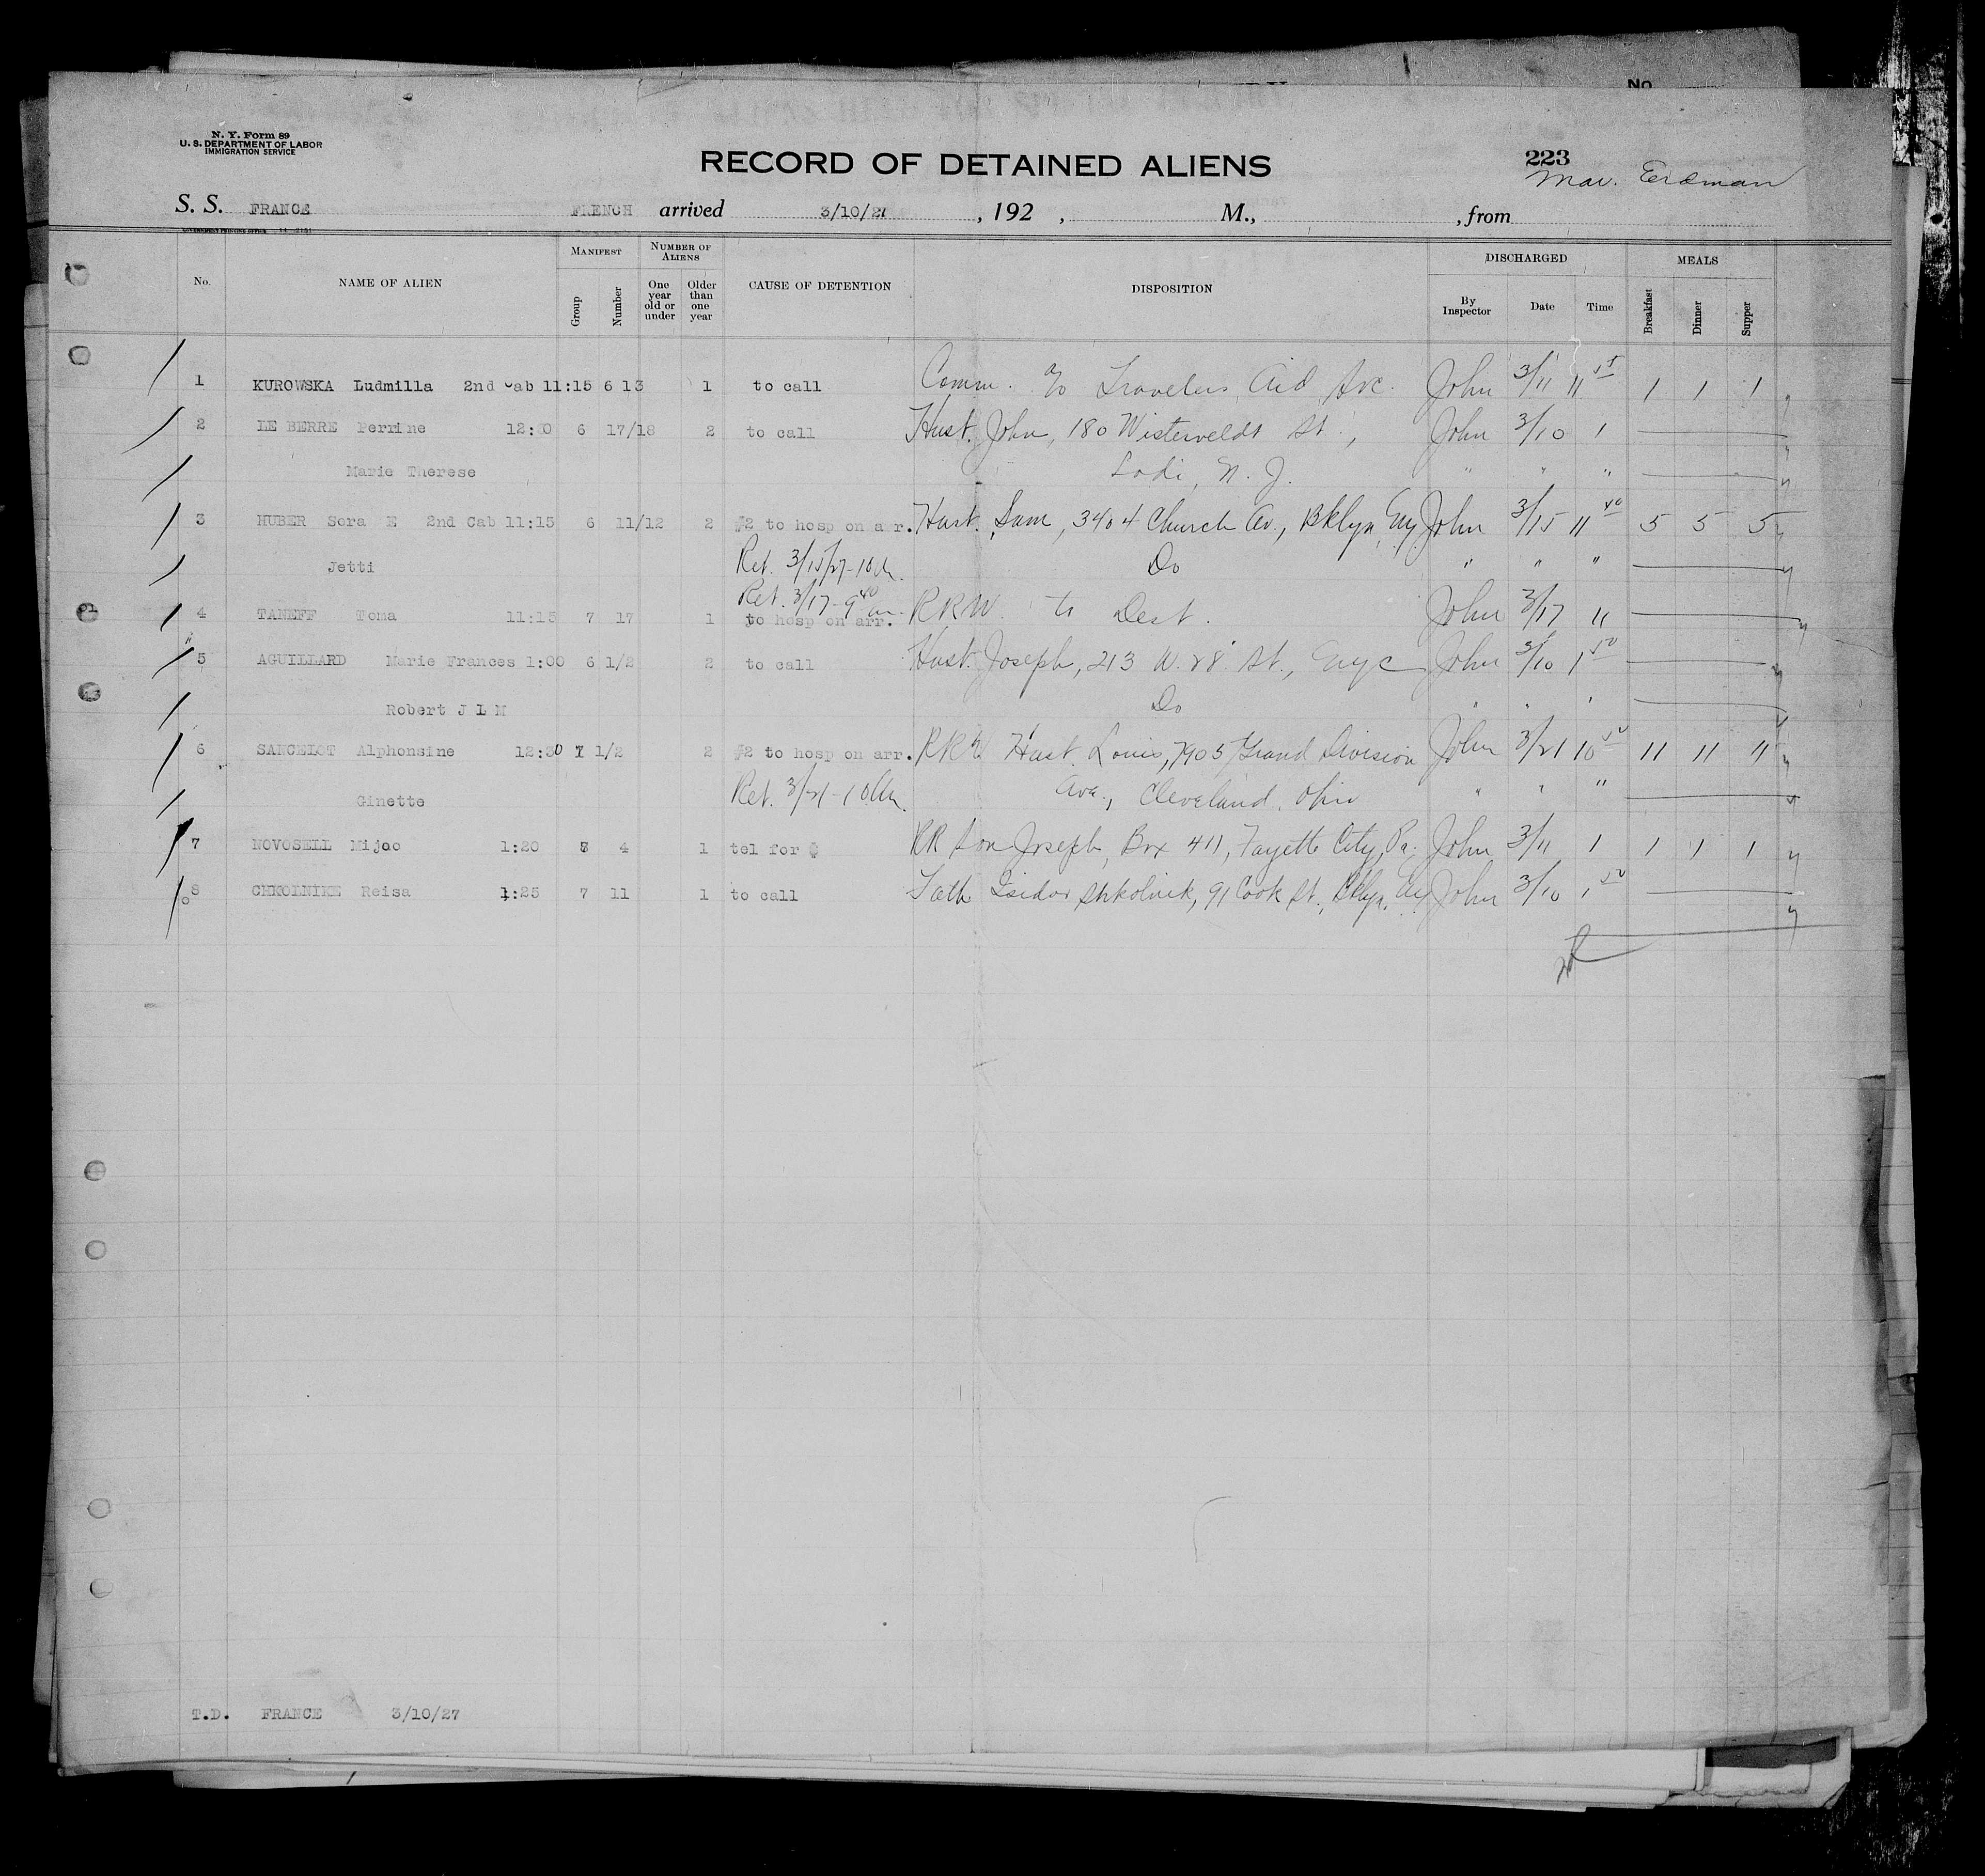 No
N. Y. Form 89
U. S. DEPARTMENT OF LABOR
IMMIGRATION SERVICE
RECORD OF DETAINED ALIENS
223
Erdman
S. S. FRANCE FRENCH arrived 3/10/27, 192 , M., , from
No. NAME OF ALIEN MANIFEST Group Number NUMBER OF ALIENS One year old or under Older than one year CAUSE OF DETENTION DISPOSITION DISCHARGED By Inspector Date Time MEALS Breakfast Dinner Supper
1 KUROWSKA Ludmilla 2nd Cab 11:15 6 13 1 to call Comm. c/o Travelers Aid Soc. John 3/11 11 1 1 1
2 LE BERRE Perrine 6 17/18 2 to call Husb. John, 180 Westerveldt St., John 3/10 1
Marie Therese Lodi, N. J. " " "
3 HUBER Sora E 2nd Cab 11:15 6 11/12 2 #2 to hosp on arr. Husb. Sam, 3404 Church Av., Bklyn, Ny John 3/15 11 40 5 5 5
Jetti Ret. 3/15/27-10 Do " " "
4 TANEFF Toma 11:15 7 17 1 Ret. 3/17-9 40 to hosp on arr. RRW to Dest. John 3/17 11
5 AGUILLARD Marie Frances 1:00 6 1/2 2 to call Husb. Joseph, 213 W. 28 St., Nyc John 3/10 1 50
Robert J L M Do " " "
6 SANCELOT Alphonsine 12:30 1/2 2 #2 to hosp on arr. RRW Husb. Louis, 7905 Grand Division John 3/21 10 50 11 11 11
Ginette Ret. 3/21-10 Ave., Cleveland, Ohio " " "
7 NOVOSELL Mijao 1:20 4 1 tel for RR Son Joseph, Box 411, Fayette City, Pa. John 3/11 1 1 1 1
8 CHKOLNIKE Reisa 1:25 7 11 1 to call Fath Isidor Shkolnik, 91 Cook St., Bklyn, Ny John 3/10 1 50
T.D. FRANCE 3/10/27